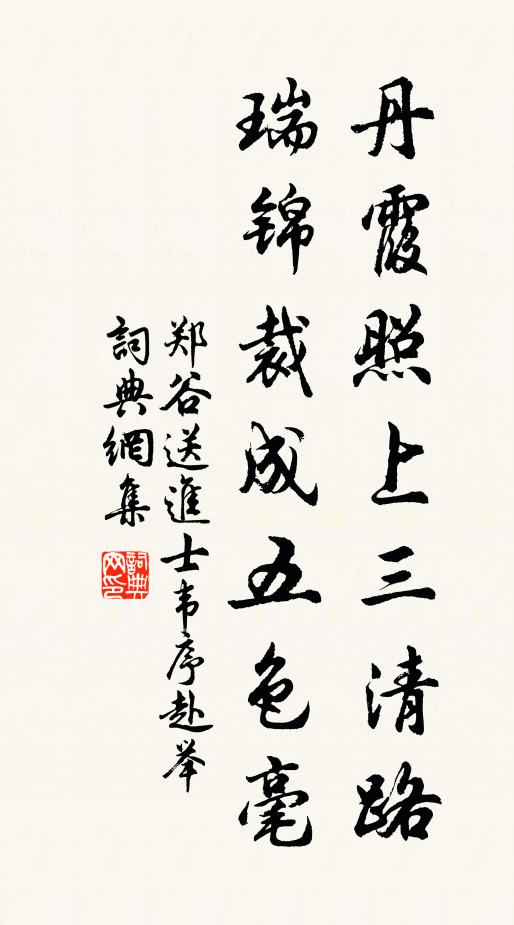 丹霞照上三清路
瑞锦裁成五色毫
郑谷送進士韦序赴举
詞典網集
詞典网印